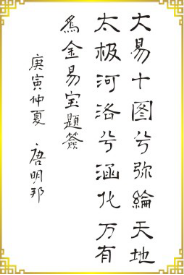 大易十图兮弥綸天地
太极河洛兮涵化万有
為金易宝題簽
庚寅仲夏 唐明邦